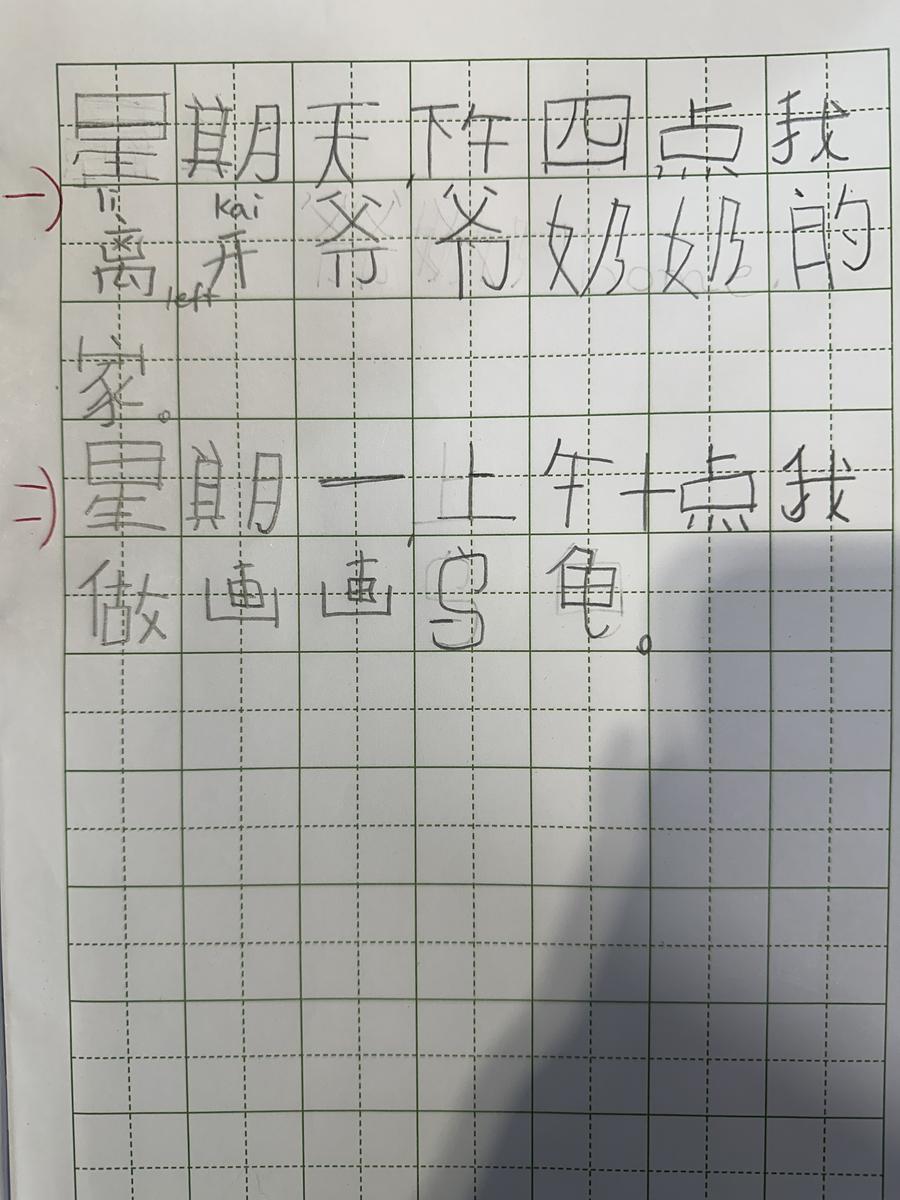 一) 星期天,下午四点我
lí kai
离开爷爷奶奶的
left
家。
二) 星期一,上午十点我
做画画乌龟。